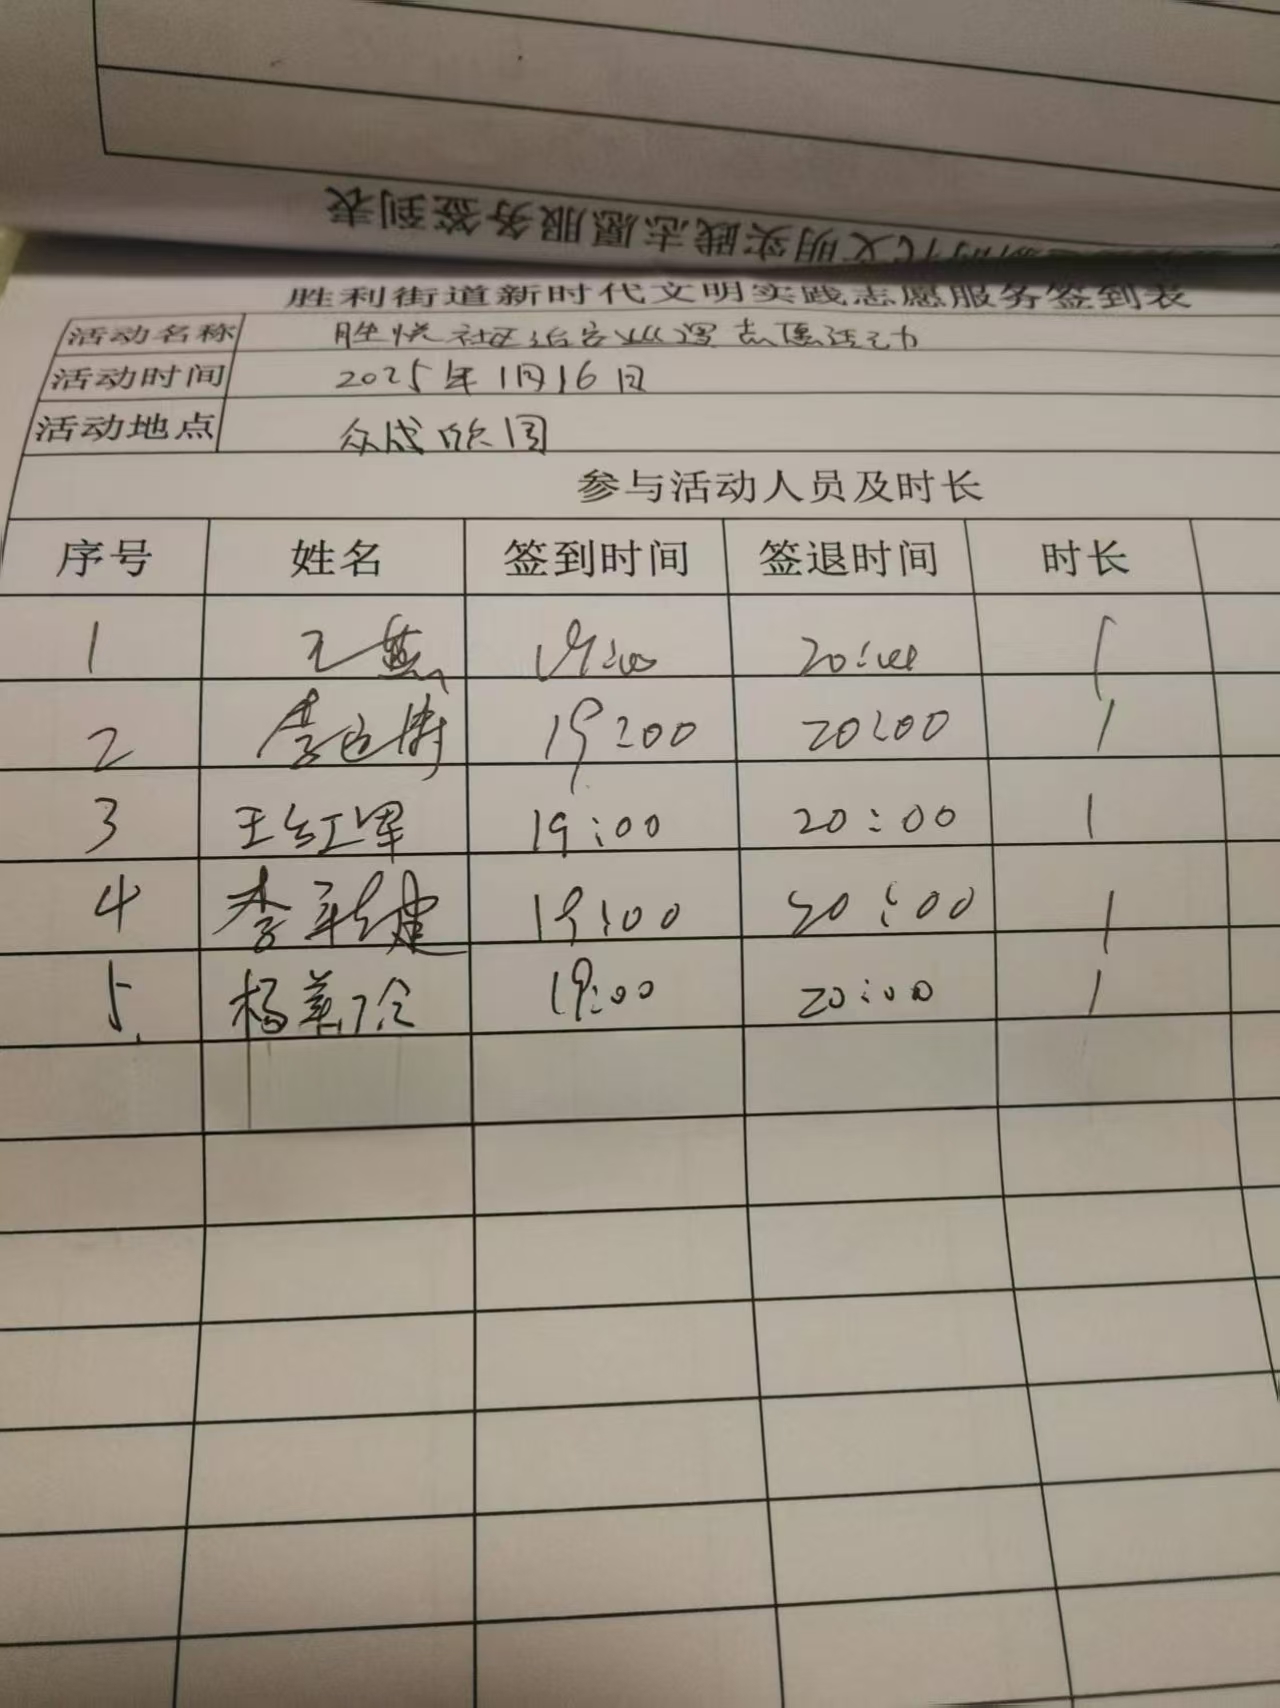 新时代文明实践志愿服务签到表
胜利街道新时代文明实践志愿服务签到表
活动名称 胜悦社区治安巡逻志愿活动
活动时间 2025年1月16日
活动地点 众成欣园
参与活动人员及时长
序号 姓名 签到时间 签退时间 时长
1 王燕 19:00 20:00 1
2 李 19:00 20:00 1
3 王红军 19:00 20:00 1
4 李 建 19:00 20:00 1
5. 杨 19:00 20:00 1